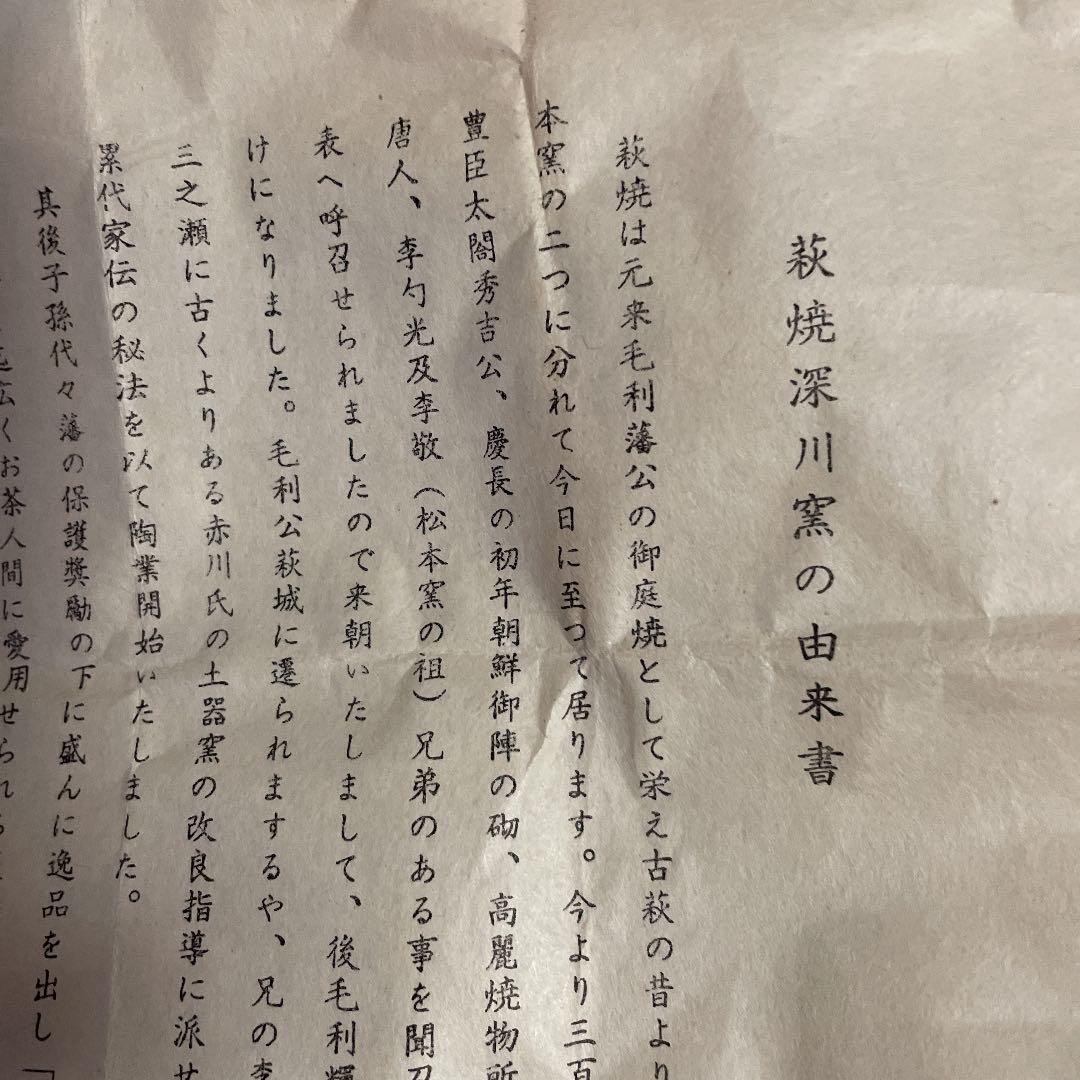 萩焼深川窯の由来書
萩焼は元来毛利藩公の御庭焼として栄え古萩の昔より
本窯の二つに分れて今日に至つて居ります。今より三百
豊臣太閤秀吉公、慶長の初年朝鮮御陣の砌、高麗焼物所
唐人、李勺光及李敬（松本窯の祖）兄弟のある事を聞
表へ呼召せられましたので来朝いたしまして、後毛利輝
けになりました。毛利公萩城に遷られまするや、兄の李
三之瀬に古くよりある赤川氏の土器窯の改良指導に派せ
累代家伝の秘法を以て陶業開始いたしました。
其後子孫代々藩の保護奨励の下に盛んに逸品を出し「
広くお茶人間に愛用せられる